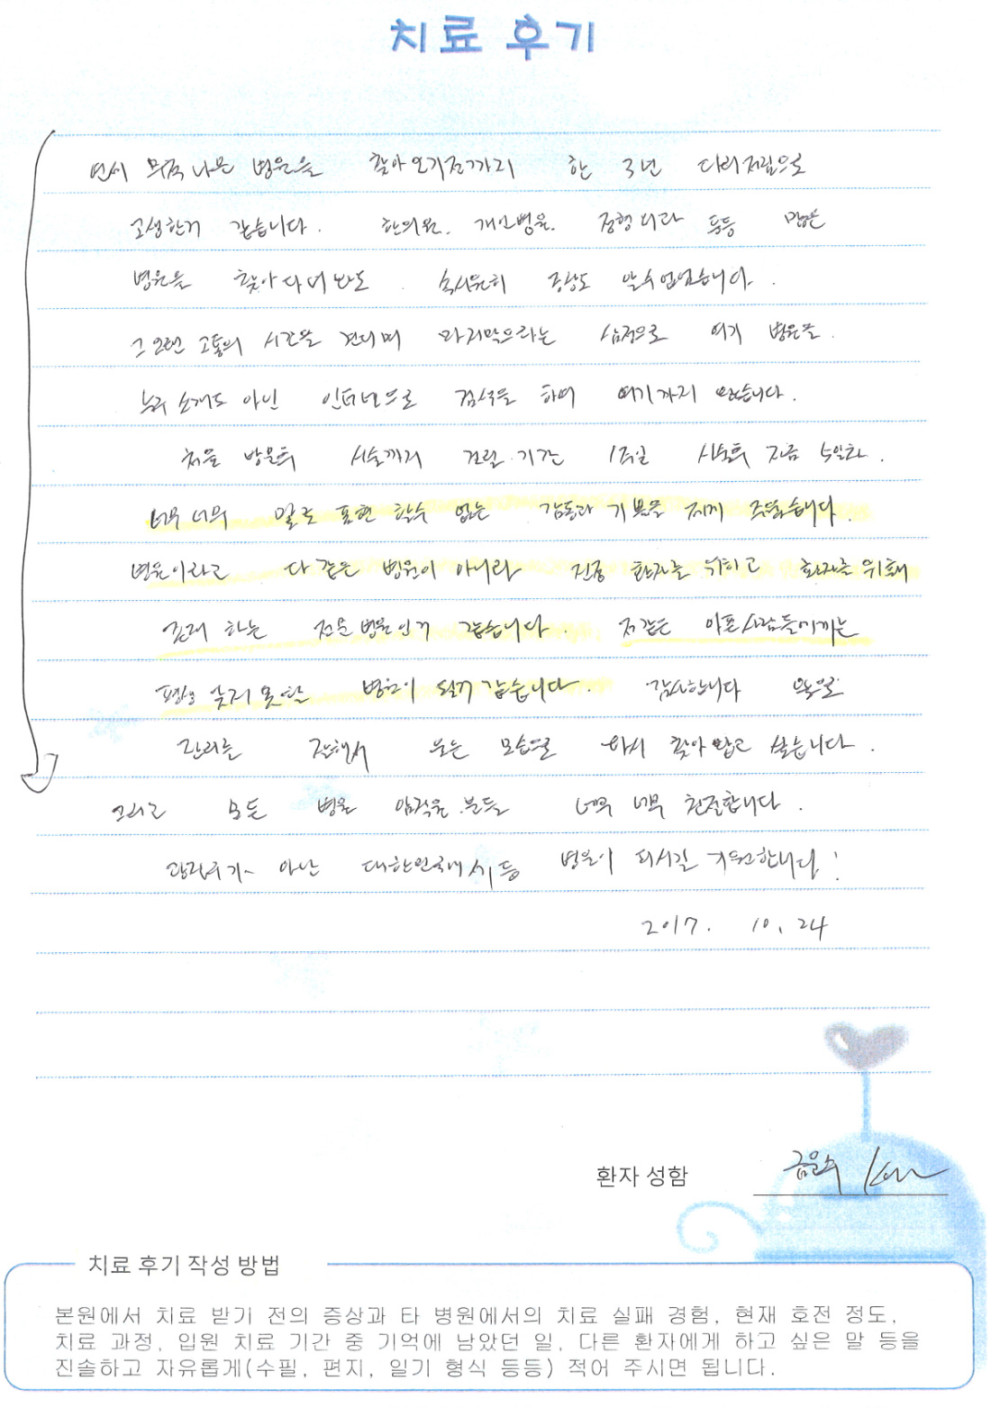 치료 후기
연시 무척 나은 병원을 찾아오기전까지 한 3년 다리저림으로
고생한거 같습니다. 한의원, 개인병원, 정형외과 등등 많은
병원을 찾아다녀봐도 속시원히 증상도 알수없었습니다.
그런 고통의 시간을 견디며 마지막으라는 심정으로 여기 병원을
누구 소개도 아닌 인터넷으로 검색을 하여 여기까지 왔습니다.
처음 방문후 시술까지 걸린 기간 1주일 시술후 지금 5일차.
너무 너무 말로 표현 할수 없는 감동과 기쁨을 저에게 주셨습니다.
병원이라고 다 같은 병원이 아니라 진정 환자를 위하고 환자를 위해
존재 하는 전문 병원인거 같습니다. 저같은 아픈사람들에게는
평생 잊지못할 병원이 될거 같습니다. 감사합니다
관리를 잘해서 웃는 모습으로 다시 찾아뵙고 싶습니다.
그리고 모든 병원 임직원 분들 너무 너무 친절합니다.
아닌 대한민국에서 1등 병원이 되시길 기원합니다!
2017. 10. 24
환자 성함
치료 후기 작성 방법
본원에서 치료 받기 전의 증상과 타 병원에서의 치료 실패 경험, 현재 호전 정도,
치료 과정, 입원 치료 기간 중 기억에 남았던 일, 다른 환자에게 하고 싶은 말 등을
진솔하고 자유롭게(수필, 편지, 일기 형식 등등) 적어 주시면 됩니다.